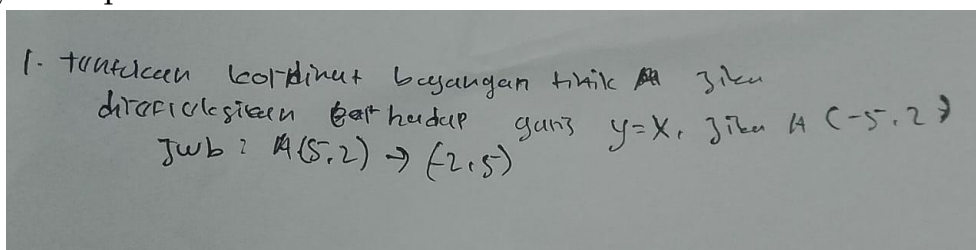 1. tentukan kordinat bayangan titik A jika
direfleksikan terhadap garis y=x, jika A (-5,2)
Jwb : A(5,2) → (-2,5)